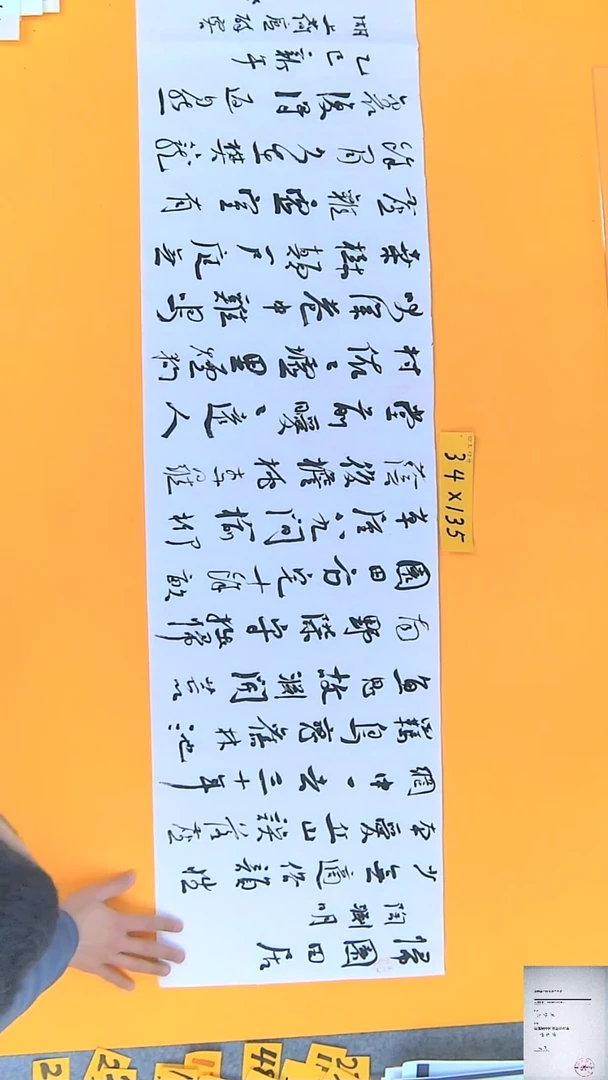 歸園田居
陶淵明
少無適俗韻性
本愛丘山誤落塵
網中一去三十年
羈鳥戀舊林池
魚思故淵開荒
南野際守拙歸
園田方宅十餘畝
草屋八九間榆柳
蔭後檐桃李羅
堂前曖〻遠人
村依〻墟里煙狗
吠深巷中雞鳴
桑樹顛戶庭無
塵雜虛室有
餘閒久在樊籠
裏復得返自然
乙巳新年
34×135